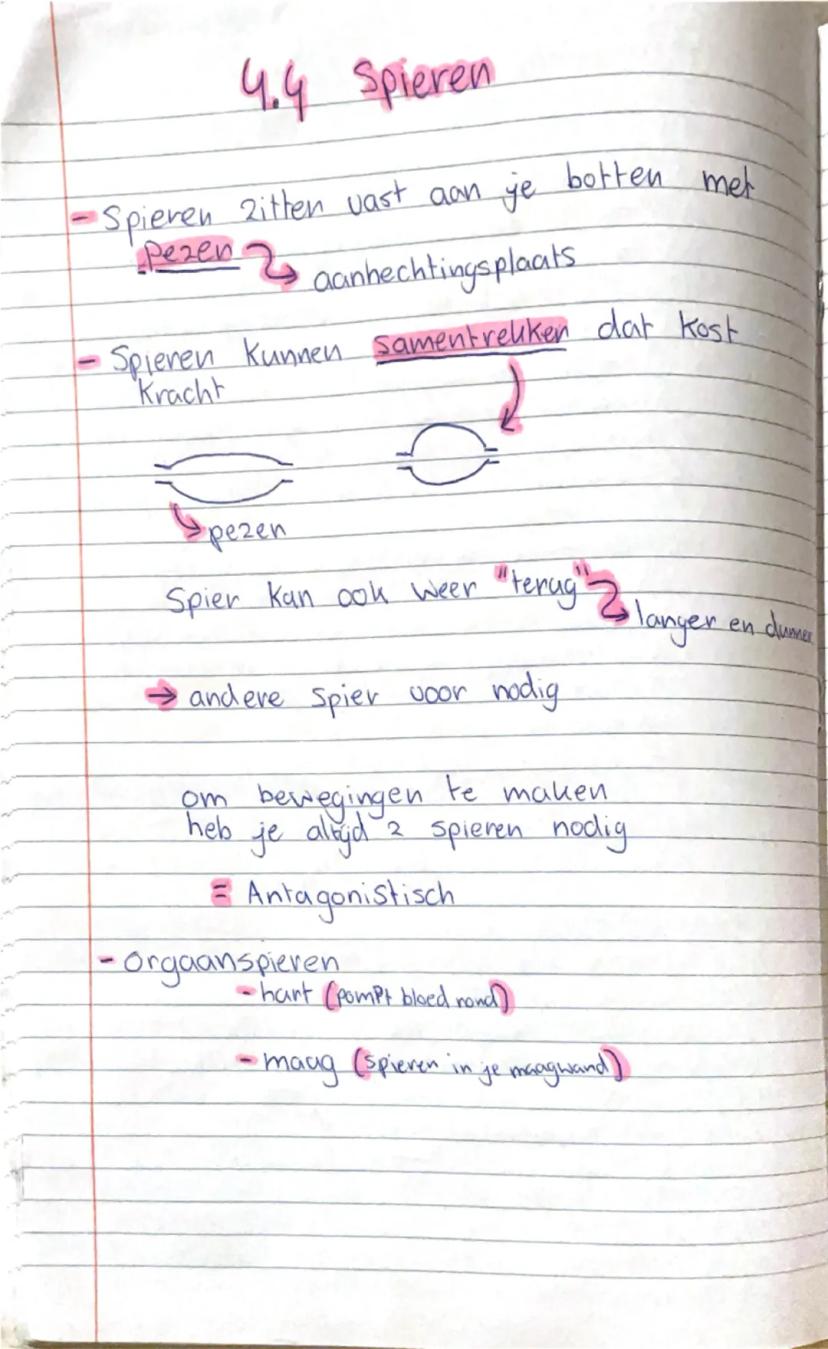 4.4 Spieren
- Spieren zitten vast aan je botten met
pezen
aanhechtingsplaats
- Spieren kunnen samentrekken dat kost
kracht
pezen
Spier kan ook weer "terug"
langer en dunner
→ andere spier voor nodig
om bewegingen te maken
heb je altijd 2 spieren nodig
= Antagonistisch
- Orgaanspieren
- hart (pompt bloed rond)
- maag (spieren in je maagwand)